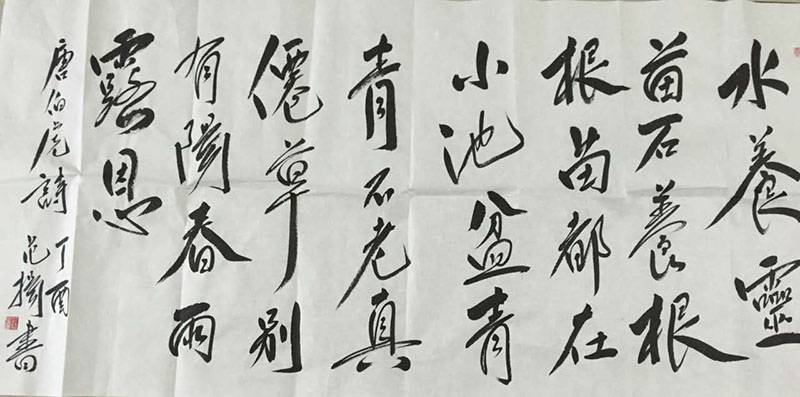 水養靈
苗石養根
根苗都在
小池盆青
青不老真
僊草別
有陽春雨
露恩
唐伯虎詩
丁酉
范書